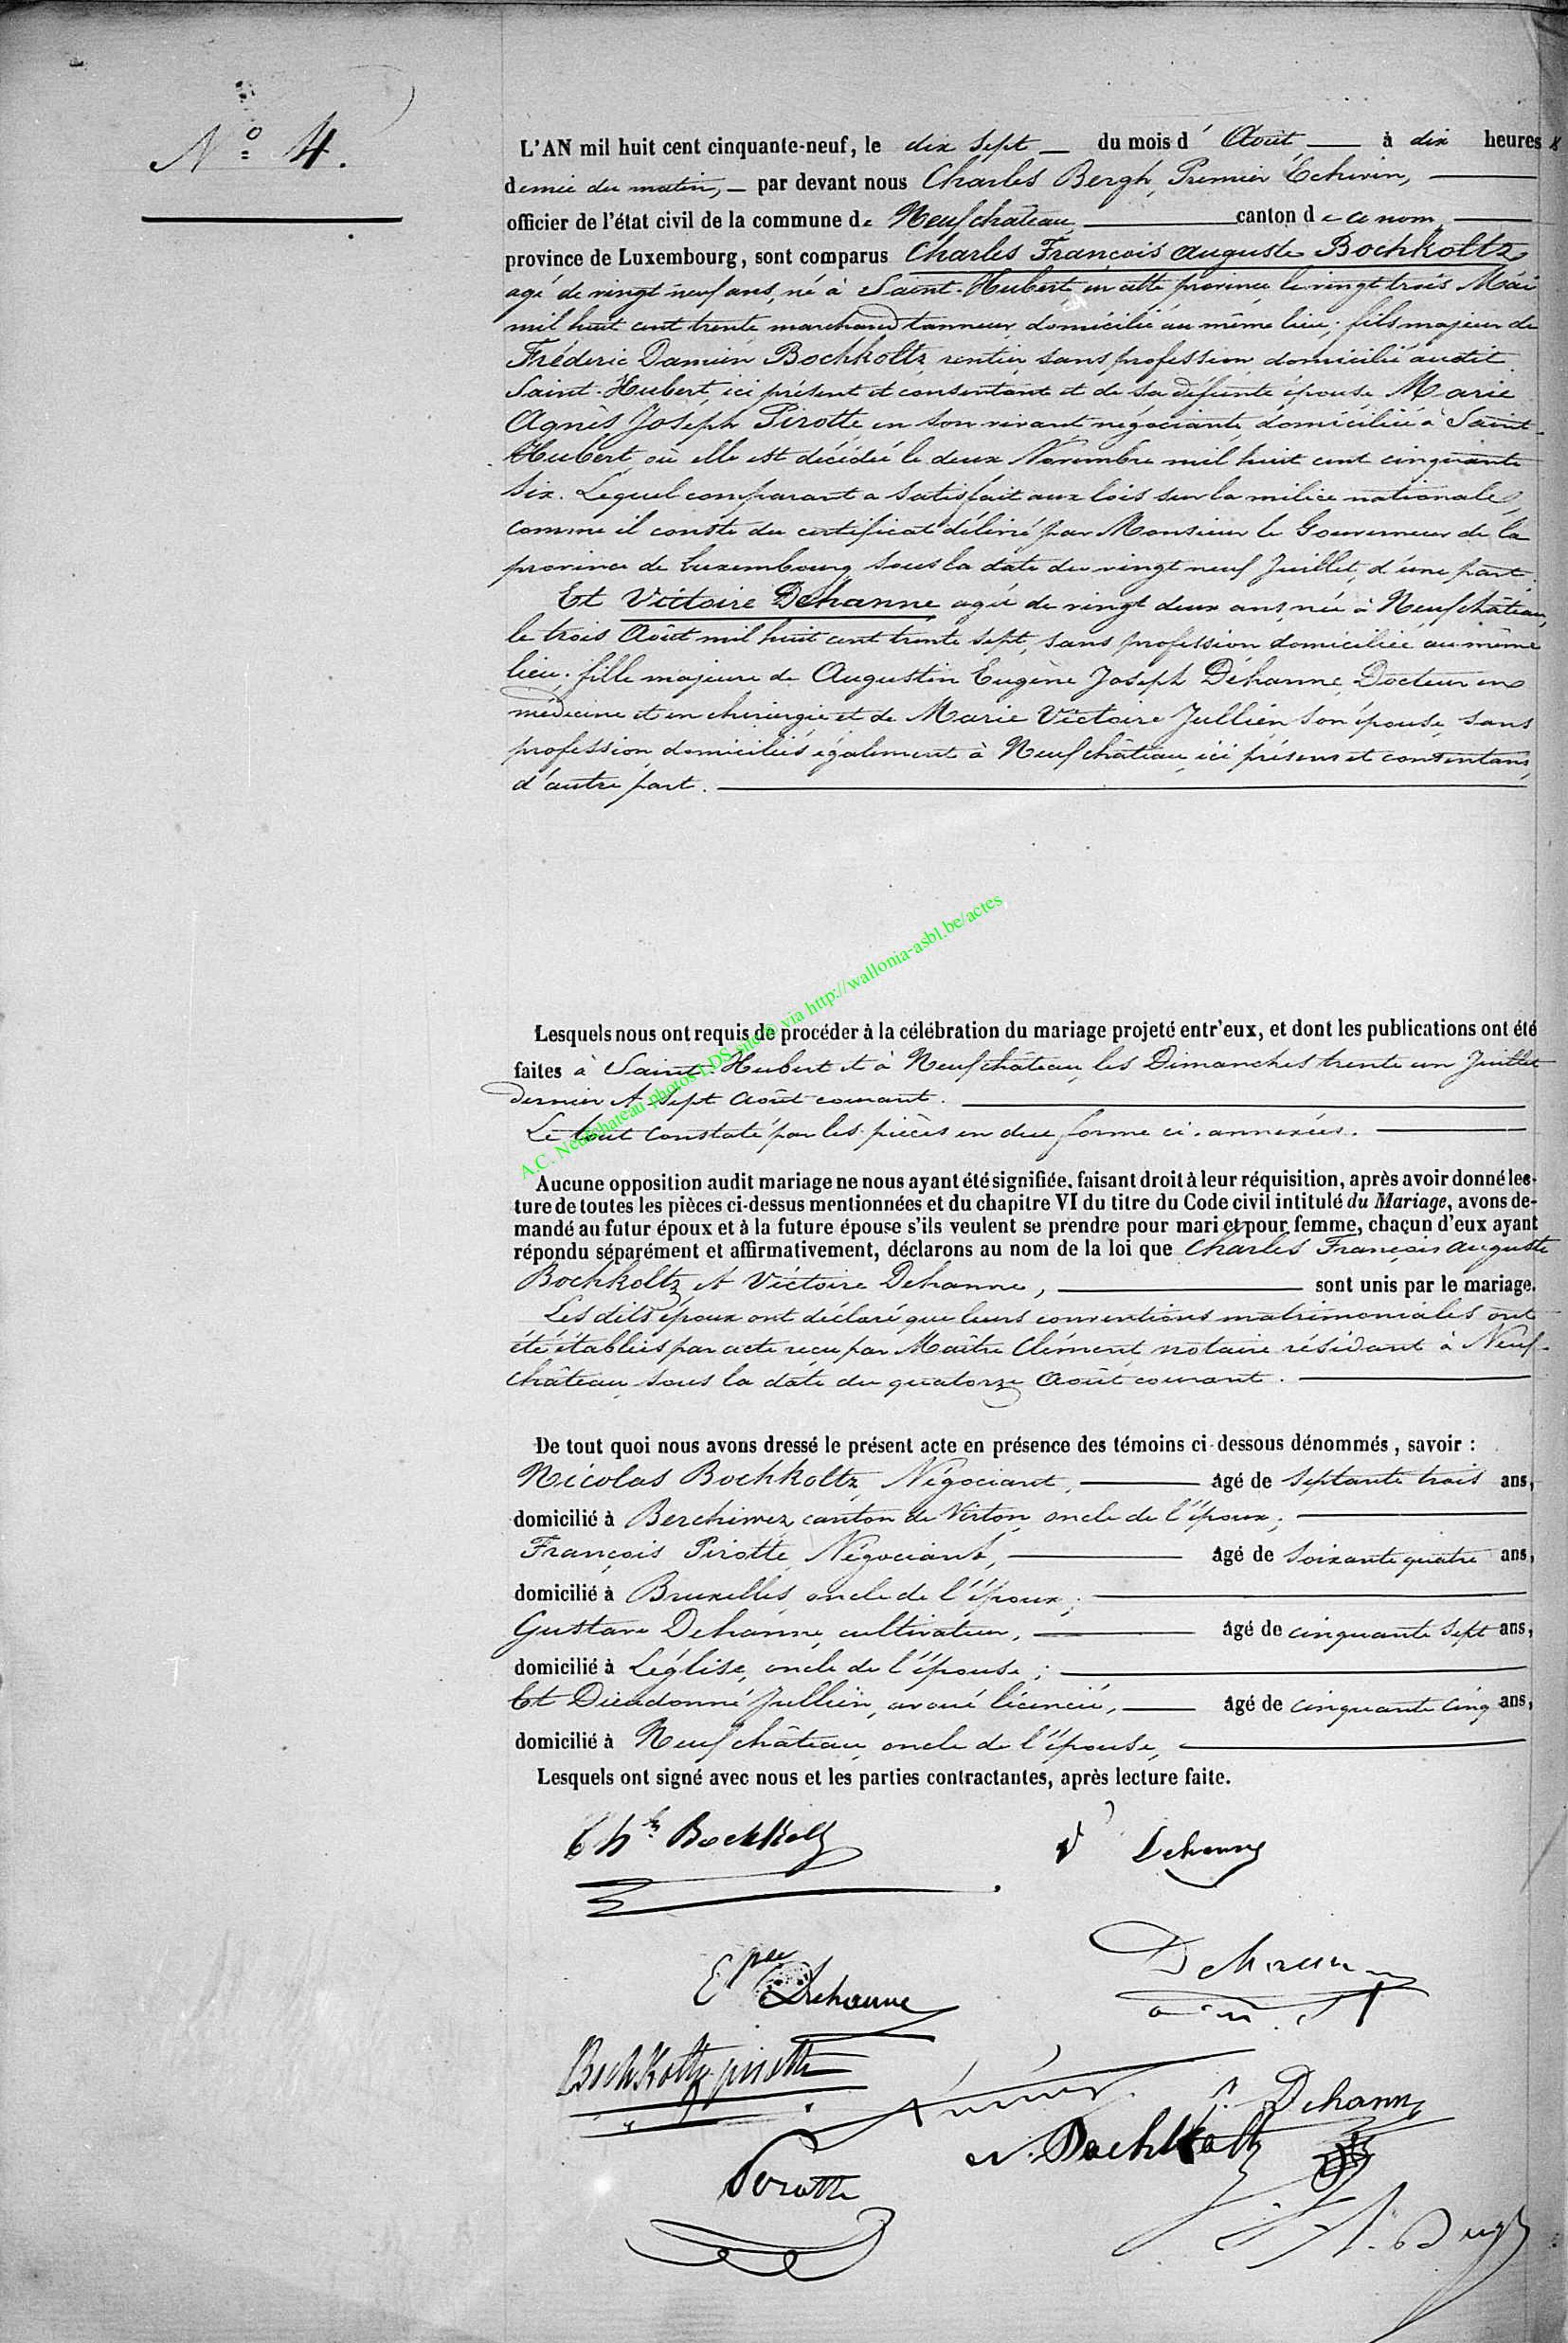 N° 4.
L'AN mil huit cent cinquante-neuf, le dix sept du mois d' Août à dix heures &
demie du matin, par devant nous Charles Bergh, Premier Echevin,
officier de l'état civil de la commune de Neufchateau canton de ce nom,
province de Luxembourg, sont comparus Charles François Auguste Bochkoltz
agé de vingt neuf ans, né à Saint-Hubert, en cette province, le vingt trois Mai
mil huit cent trente, marchand tanneur, domicilié au même lieu; fils majeur de
Fréderic Damien Bochkoltz, rentier, sans profession, domicilié audit
Saint-Hubert, ici présent et consentant et de sa défunte épouse Marie
Agnès Joseph Pirotte, en son vivant négociante, domiciliée à Saint-
Hubert, où elle est décédée le deux Novembre mil huit cent cinquante
six. Lequel comparant a satisfait aux lois sur la milice nationale,
comme il conste du certificat délivré par Monsieur le Gouverneur de la
province de Luxembourg sous la date du vingt neuf Juillet, d'une part.
Et Victoire Dehanne agée de vingt deux ans, née à Neufchâteau,
le trois Août mil huit cent trente sept, sans profession domiciliée au même
lieu; fille majeure de Augustin Eugène Joseph Dehanne, Docteur en
médecine et en chirurgie, et de Marie Victoire Jullien son épouse, sans
profession, domiciliés également à Neufchâteau, ici présens et consentans,
d'autre part.
Lesquels nous ont requis de procéder à la célébration du mariage projeté entr'eux, et dont les publications ont été
faites à Saint-Hubert et à Neufchâteau, les Dimanches trente un Juillet
dernier et sept Août courant.
Le tout constaté par les pièces en due forme ci-annexées.
A.C. Neufchateau photos LDS, site © via http://wallonia-asbl.be/actes
Aucune opposition audit mariage ne nous ayant été signifiée, faisant droit à leur réquisition, après avoir donné lec-
ture de toutes les pièces ci-dessus mentionnées et du chapitre VI du titre du Code civil intitulé du Mariage, avons de-
mandé au futur époux et à la future épouse s'ils veulent se prendre pour mari et pour femme, chacun d'eux ayant
répondu séparément et affirmativement, déclarons au nom de la loi que Charles François Auguste
Bochkoltz et Victoire Dehanne, sont unis par le mariage.
Les dits époux ont déclaré que leurs conventions matrimoniales ont
été établies par acte reçu par Maître Clément, notaire résidant à Neuf-
château, sous la date du quatorze Août courant.
De tout quoi nous avons dressé le présent acte en présence des témoins ci-dessous dénommés, savoir :
Nicolas Bochkoltz, Négociant, âgé de septante trois ans,
domicilié à Berchiwez, canton de Virton, oncle de l'époux;
François Pirotte, Négociant, âgé de soixante quatre ans,
domicilié à Bruxelles, oncle de l'époux;
Gustave Dehanne, cultivateur, âgé de cinquante sept ans,
domicilié à Léglise, oncle de l'épouse;
Et Dieudonné Jullien, avoué licencié, âgé de cinquante cinq ans,
domicilié à Neufchâteau, oncle de l'épouse,
Lesquels ont signé avec nous et les parties contractantes, après lecture faite.
Chs Bochkoltz V Dehanne
Dehanne
Dehanne
Bochkoltz pirotte
Dehanne
N. Bochkoltz
Pirotte